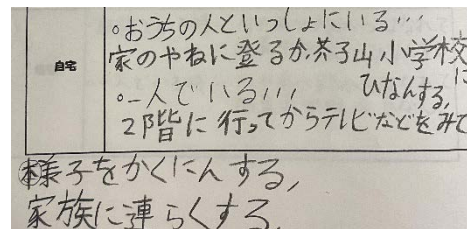 自宅
。おうちの人といっしょにいる…
家のやねに登るか、茶子山小学校に
ひなんする。
。一人でいる…
2階に行ってからテレビなどをみて
様子をかくにんする。
家族に連らくする。